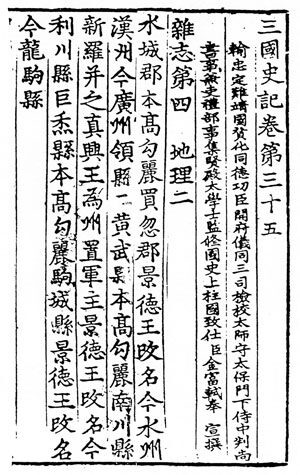 三國史記卷第三十五
輸忠定難靖國贊化同德功臣開府儀同三司檢校太師守太保門下侍中判尚
書事兼吏禮部事集賢殿太學士監修國史上柱國致仕臣金富軾奉 宣撰
雜志第四 地理二
水城郡本髙句麗買忽郡景德王改名今水州
漢州今廣州領縣二黃武縣本髙句麗南川縣
新羅并之真興王為州置軍主景德王改名今
利川縣巨黍縣本髙句麗駒城縣景德王改名
今龍駒縣